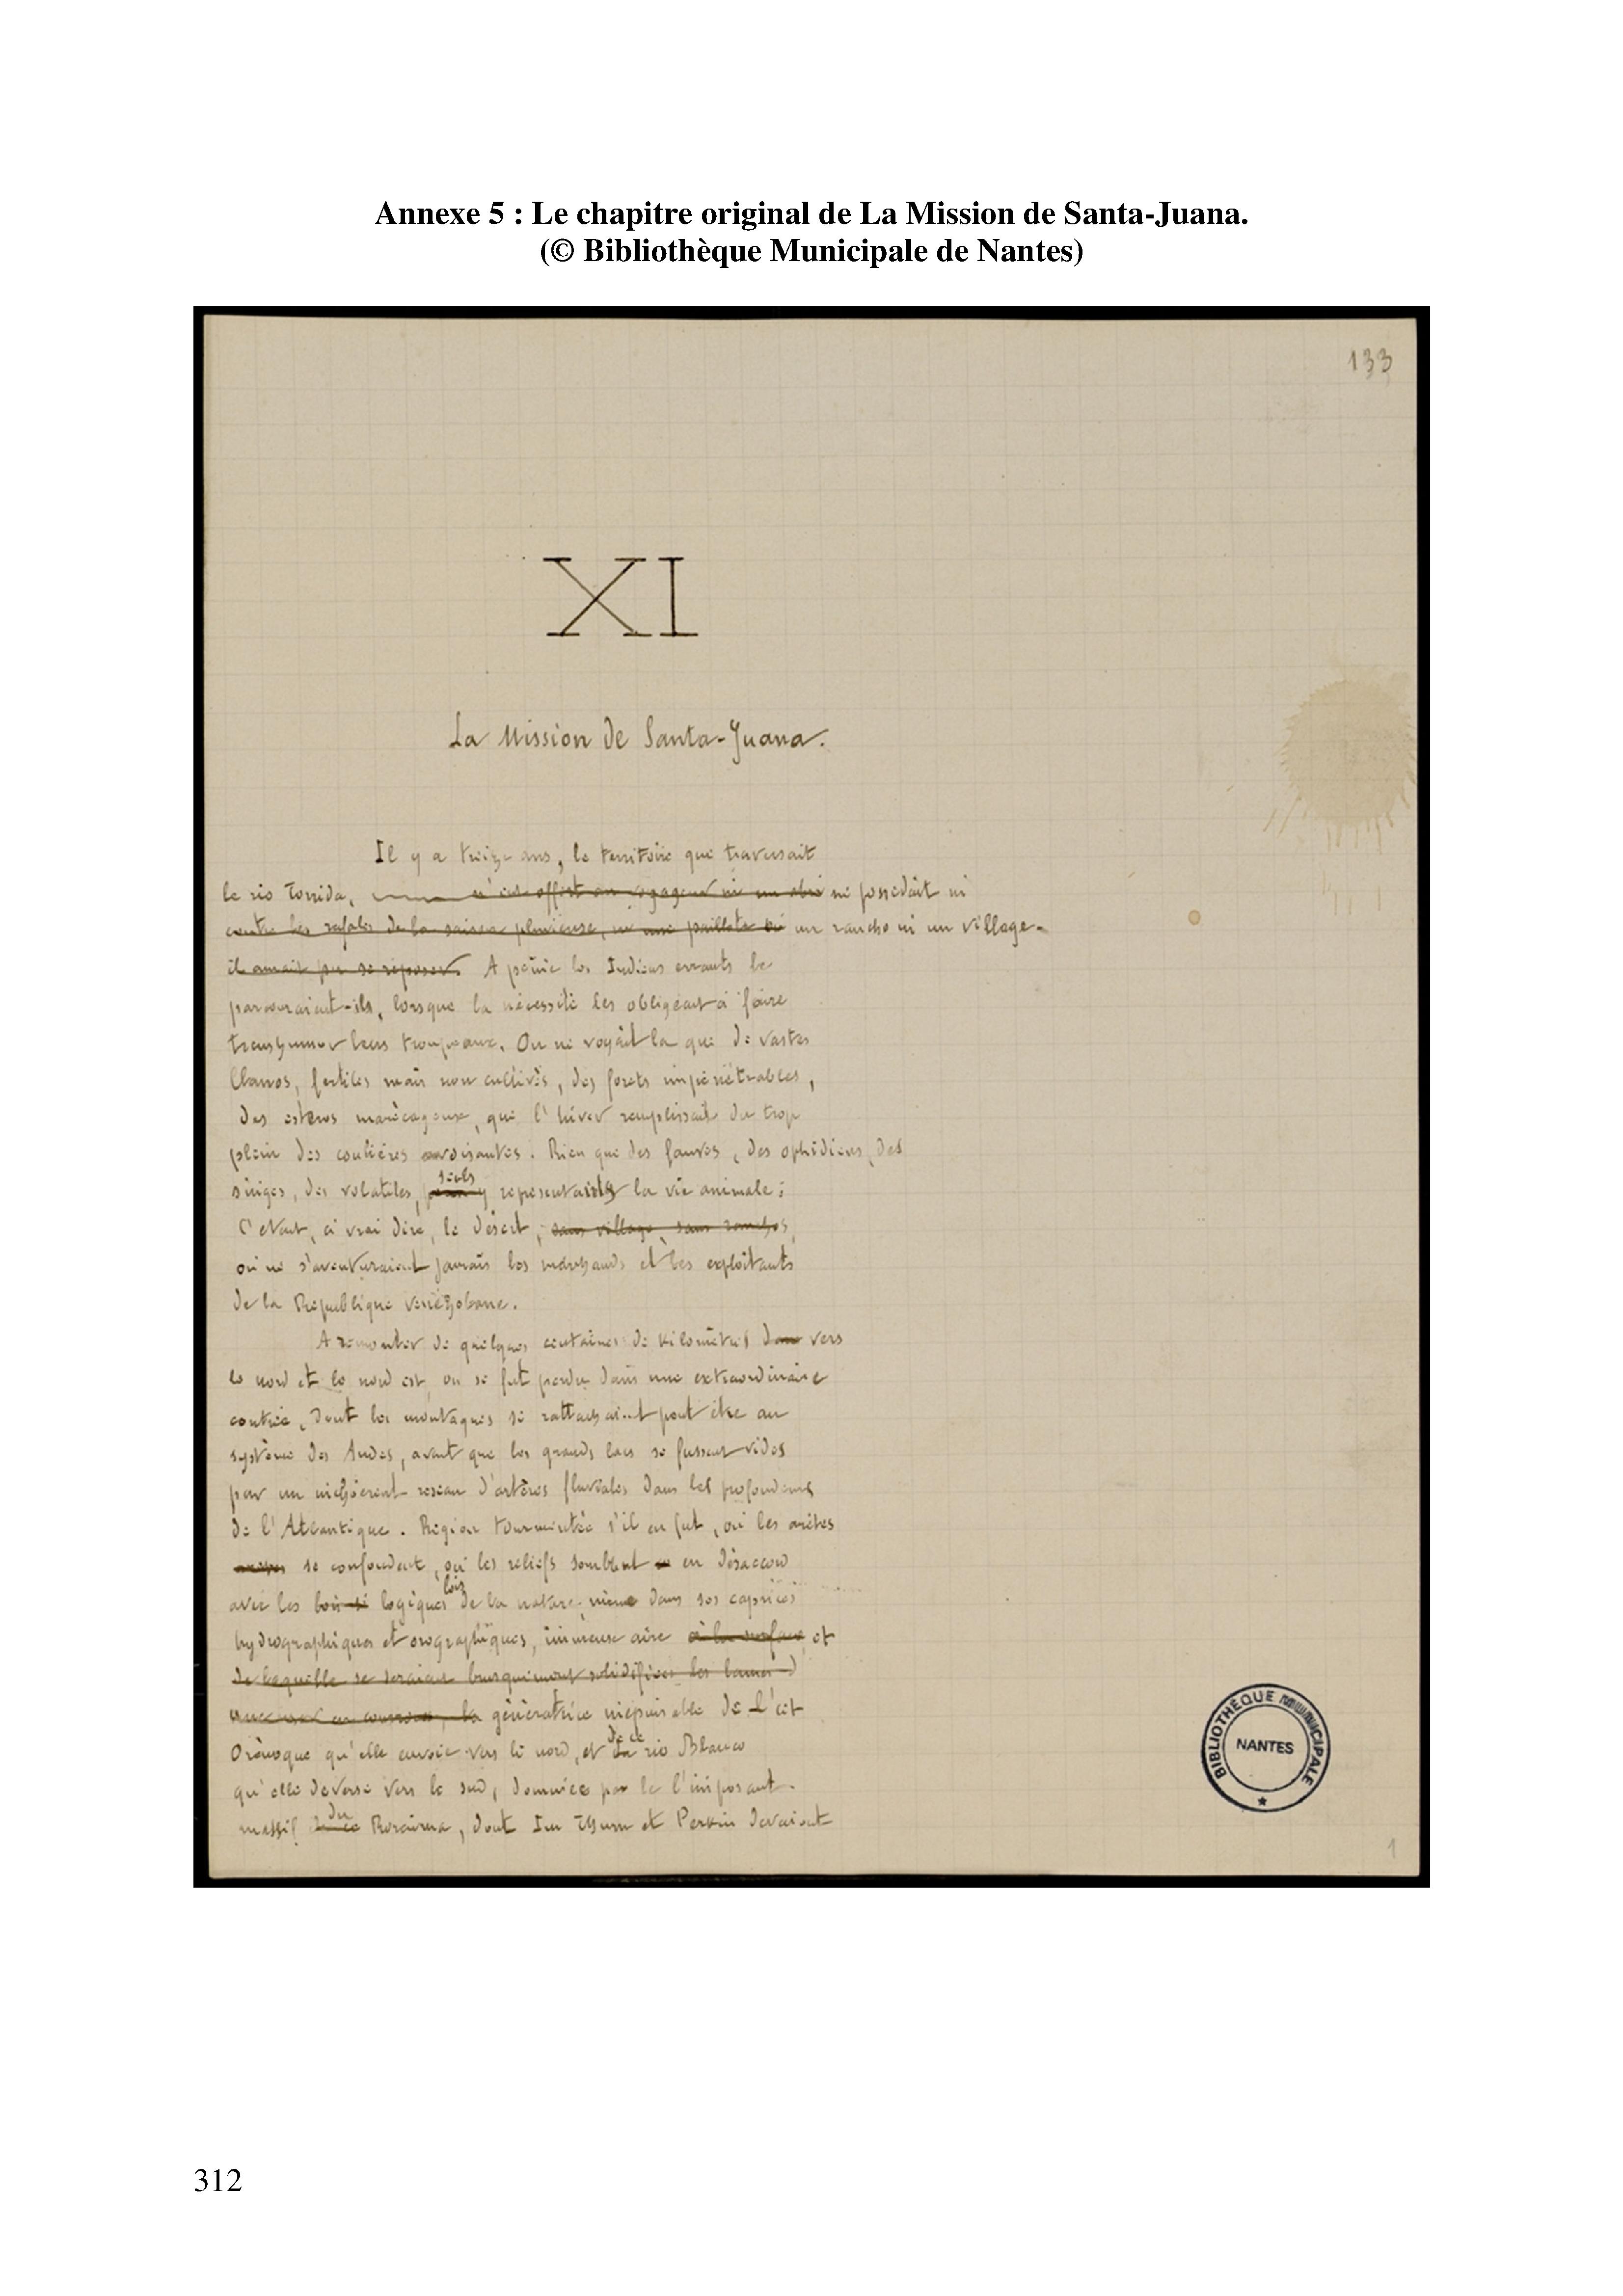 Annexe 5 : Le chapitre original de La Mission de Santa-Juana.
(© Bibliothèque Municipale de Nantes)
133
XI
La Mission de Santa-Juana.
Il y a treize ans, le territoire que traversait
le rio Torrida, n'eut offert au voyageur ni un abri ni possédait ni
contre les rafales de la saison pluvieuse, ni une paillote où un rancho ni un village.
il aurait pu se reposer. A peine les Indiens errants le
parcouraient-ils, lorsque la nécessité les obligeait à faire
transhumer leurs troupeaux. On ne voyait la que de vastes
llanos, fertiles mais non cultivés, des forets impénétrables,
des esteros marécageux, que l'hiver remplissait du trop
plein des coulières avoisinantes. Rien que des fauves, des ophidiens, des
singes, des volatiles, seuls y représentaient la vie animale ;
C'était, à vrai dire, le désert, sans village, sans ranchos,
où ne s'aventuraient jamais les marchands et les exploitants
de la République vénézolane.
A remonter de quelques centaines de kilomètres dans vers
le nord et le nord est, on se fut perdu dans une extraordinaire
contrée, dont les montagnes se rattachaient peut être au
système des Andes, avant que les grands lacs se fussent vidés
par un incohérent réseau d'artères fluviales dans les profondeurs
de l'Atlantique. Région tourmentée s'il en fut, où les arêtes
se confondent, où les reliefs semblent en désaccord
avec les logiques lois de la nature, même dans ses caprices
hydrographiques et orographiques, immense aire à la surface et
de laquelle se seraient brusquement solidifiées les lames d
en courroux, la génératrice inépuisable de l'cet
Orénoque qu'elle envoie vers le nord, et de ce rio Blanco
qu'elle déverse vers le sud, dominée par le l'imposant
massif du Roraima, dont Im Thurn et Perkin devaient
BIBLIOTHÈQUE MUNICIPALE
NANTES
1
312